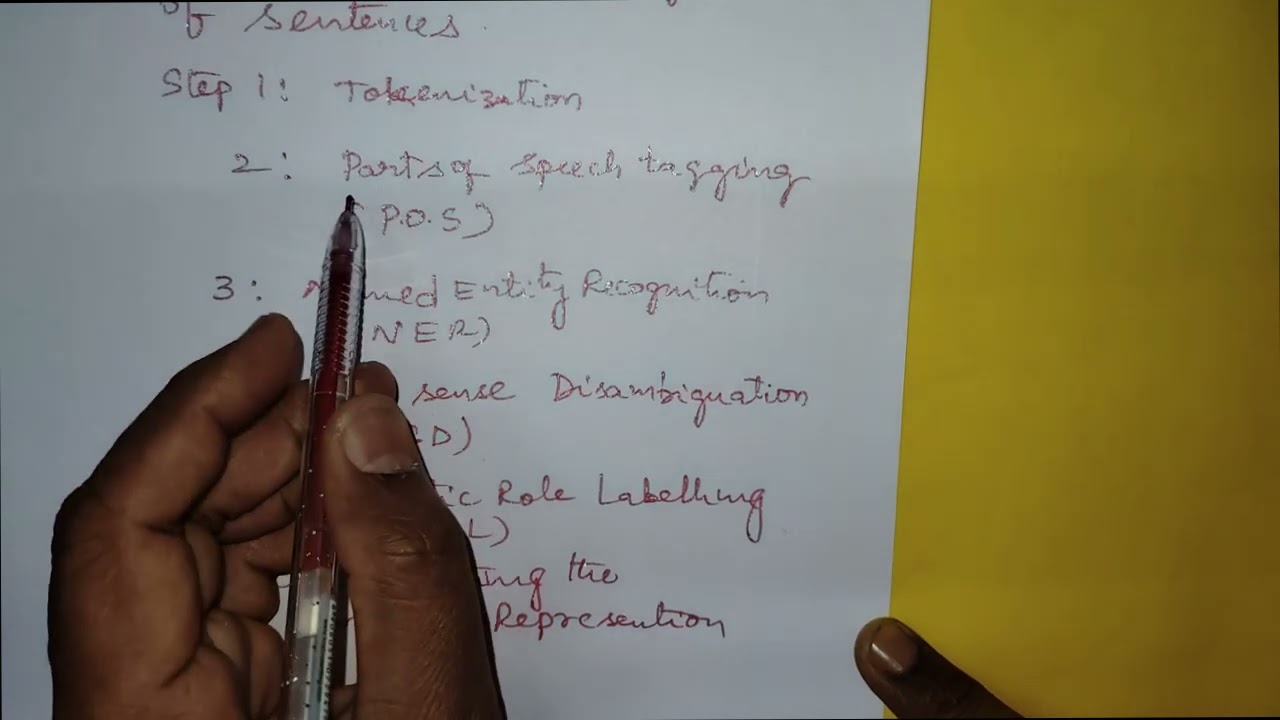 of sentences.
Step 1: Tokenization
2: Parts of speech tagging
(P.O.S)
3: Named Entity Recognition
NER)
sense Disambiguation
D)
tic Role Labelling
L)
ing the
Represention